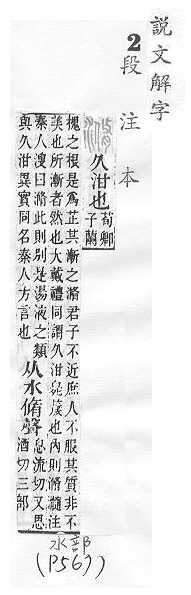 説文解字
2段注本
滫 久泔也 荀卿
子蘭
槐之根是爲芷其漸之滫君子不近庶人不服其質非不
美也所漸者然也大戴禮同謂久泔臭薉也內則滫瀡注
秦人溲曰滫此則別是湯液之類
與久泔異實同名秦人方言也
从水脩聲 息流切又思
酒切三部
水部
(P567)